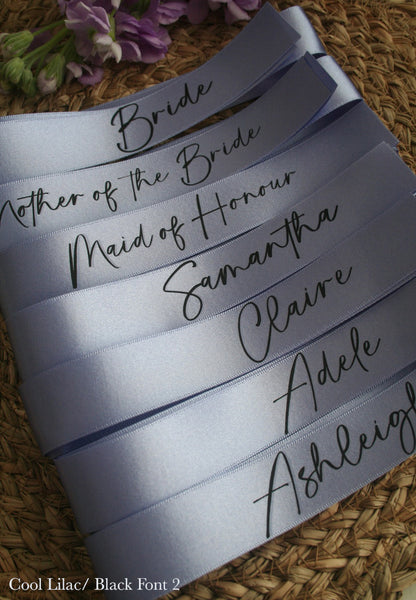 Bride
Mother of the Bride
Maid of Honour
Samantha
Claire
Adele
Ashleigh
Cool Lilac/ Black Font 2